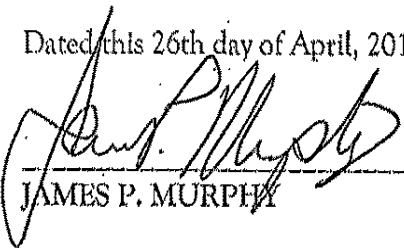 Dated this 26th day of April, 201
James P. Murphy
JAMES P. MURPHY